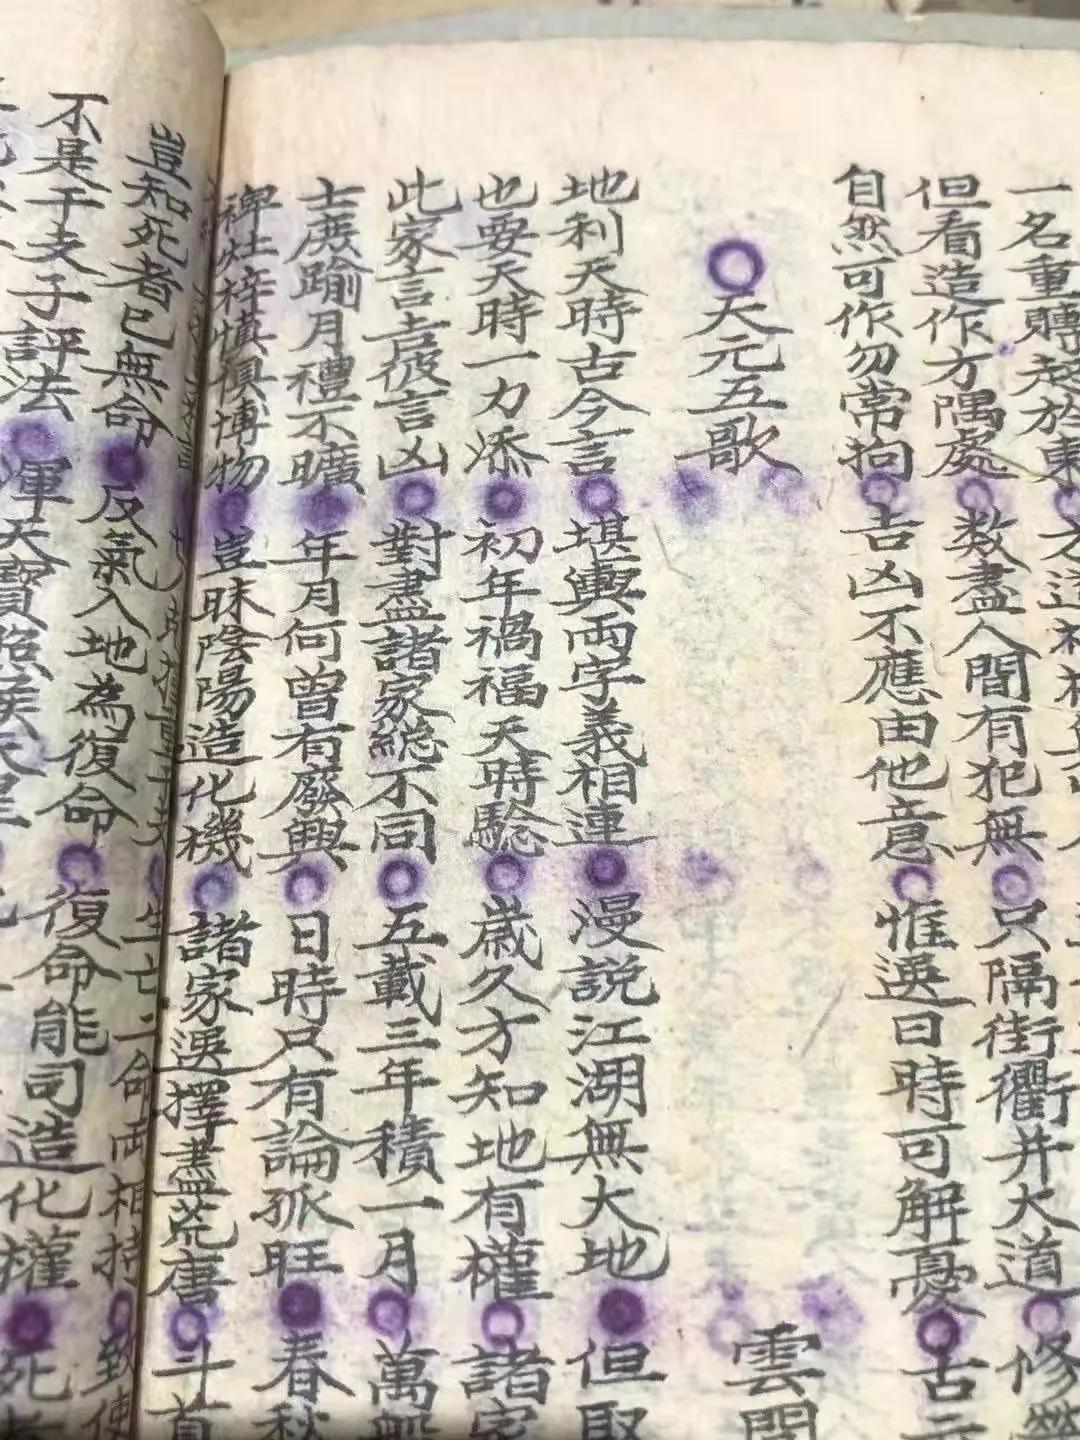 一名重轉於東
但看造作方隅處 数盡人間有犯無 只隔街衢并大道 修
自然可作勿常拘 吉凶不應由他意 惟選日時可解憂 古
天元五歌 雲間
地利天時古今言 堪輿両字義相連 漫説江湖無大地 但取
也要天時一力添 初年禍福天時驗 歳久方知地有權 諸家
此家言吉彼言凶 對盡諸家総不同 五載三年積一月 萬般
士庶踰月禮不曠 年月何曽有廢興 日時只有論孤旺 春秋
裨灶梓慎慎博物 豈昧陰陽造化機 諸家選擇盡荒唐 斗首
生亡二命両相持 致使
豈知死者已無命 反氣入地為復命 復命能司造化權 死
不是干支子評法 渾天寶照